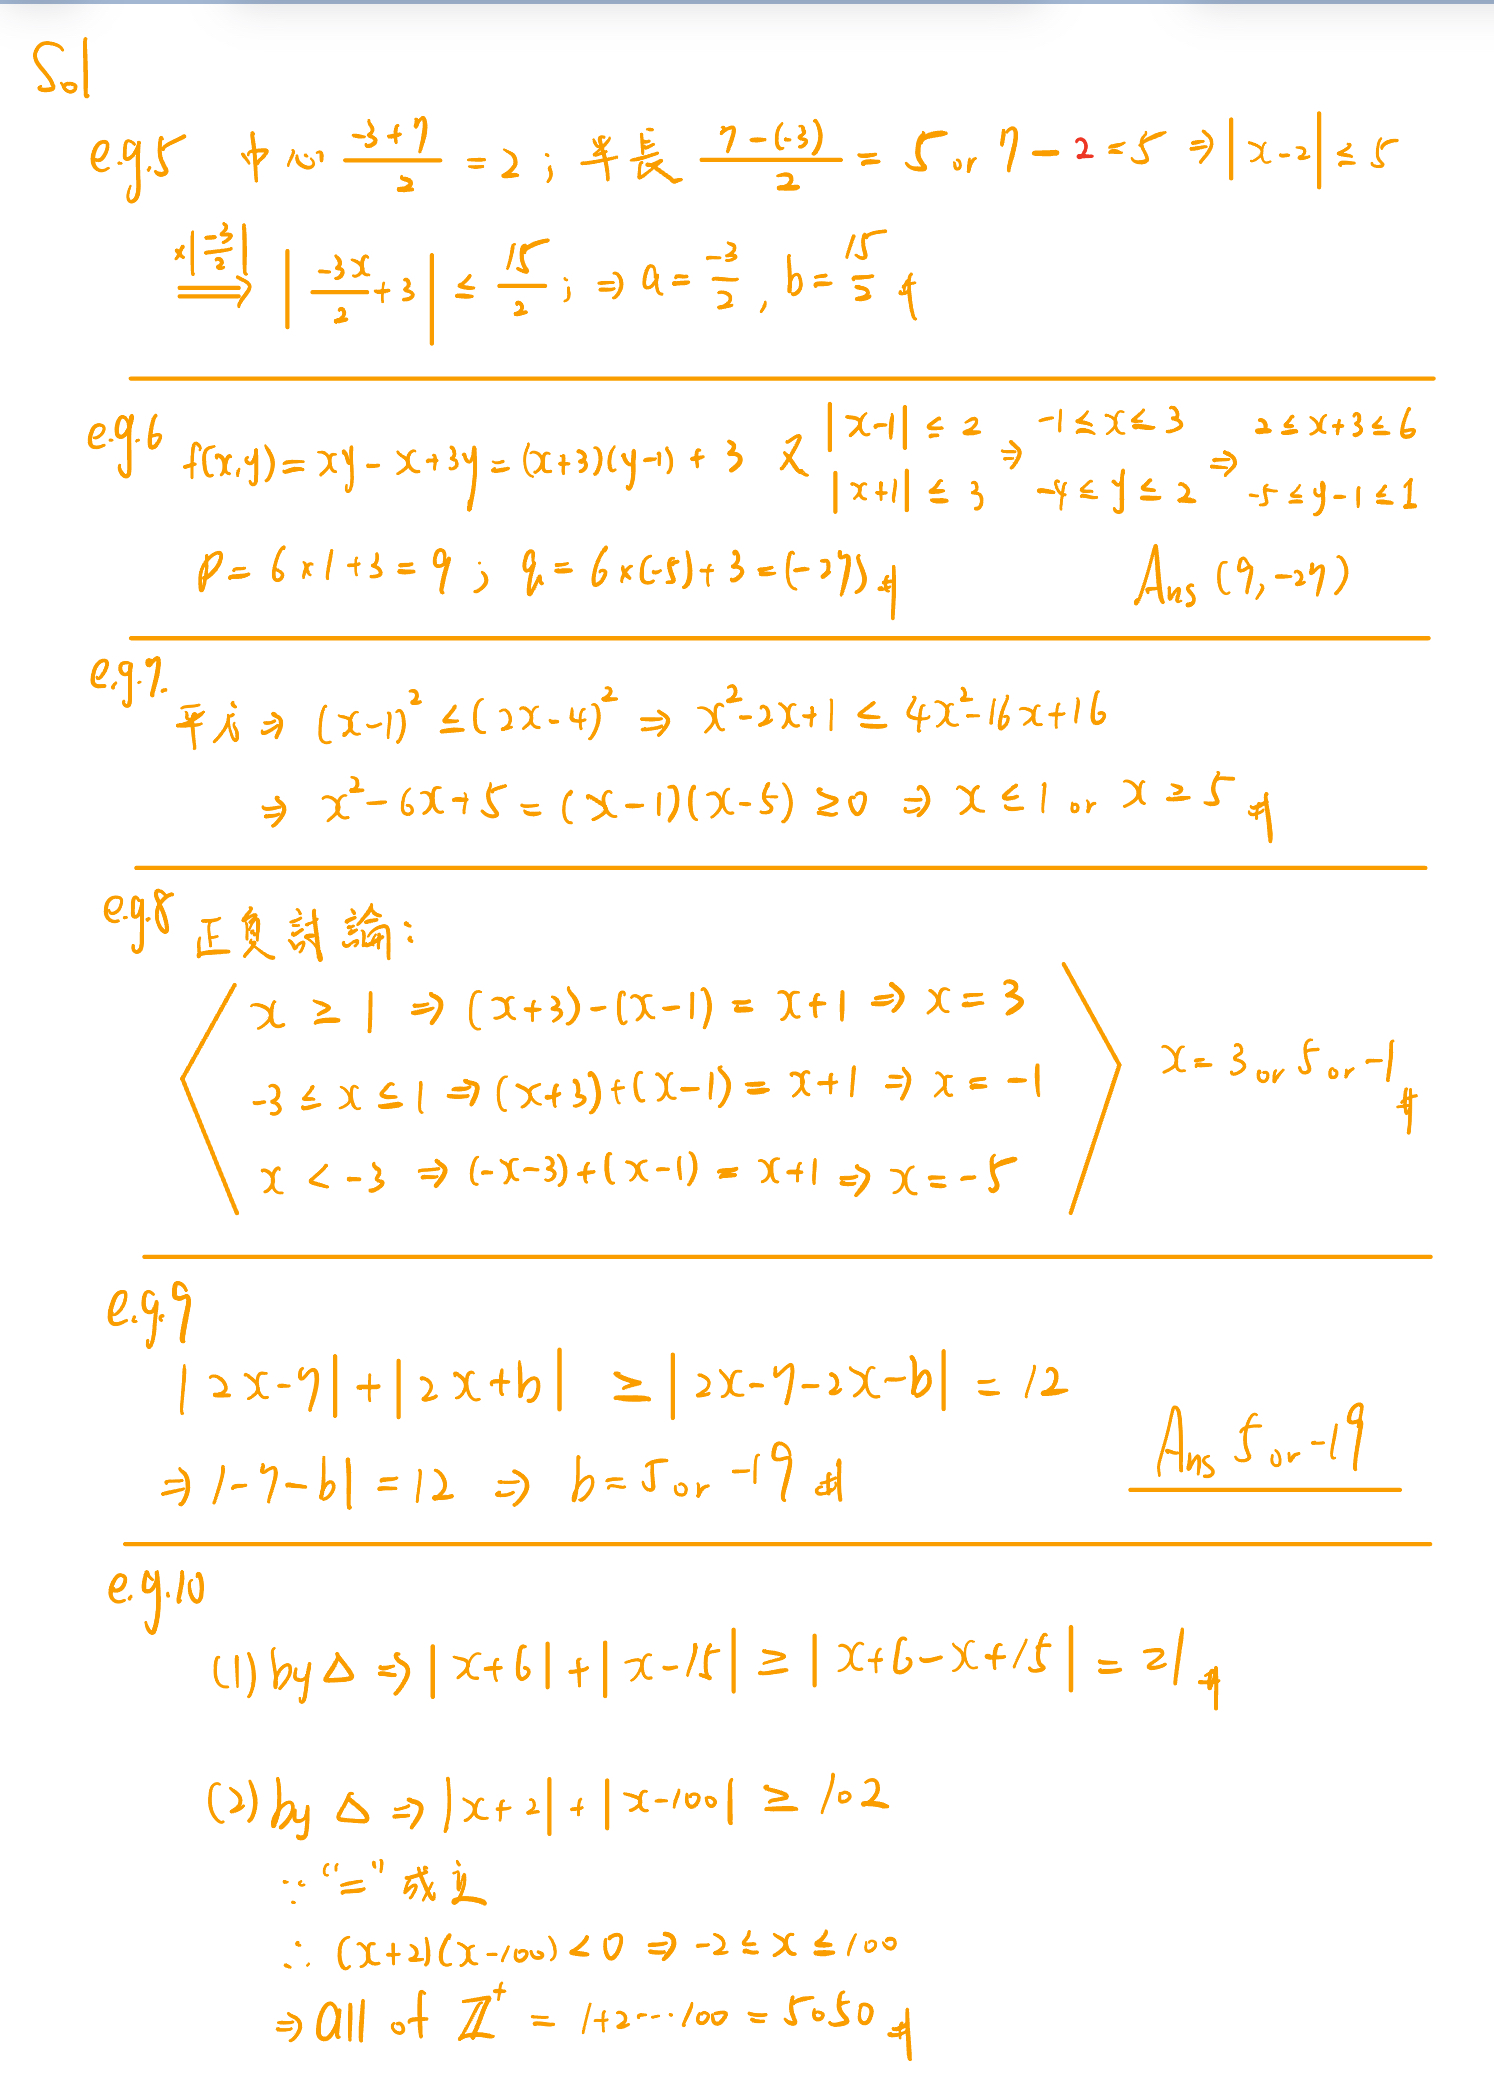 Sol
e.g.5 中心 (-3+7)/2 = 2 ; 半長 (7-(-3))/2 = 5 or 7-2=5 ⇒ |x-2| ≤ 5
×|-3/2| ⟹ |-3x/2 + 3| ≤ 15/2 ; ⇒ a = -3/2 , b = 15/2 #
e.g.6 f(x,y) = xy - x + 3y = (x+3)(y-1) + 3 又 |x-1| ≤ 2 ⇒ -1 ≤ x ≤ 3 ⇒ 2 ≤ x+3 ≤ 6
|x+1| ≤ 3 -4 ≤ y ≤ 2 -5 ≤ y-1 ≤ 1
p = 6×1+3 = 9 ; q = 6×(-5)+3 = (-27) # Ans (9,-27)
e.g.7.
平方 ⇒ (x-1)² ≤ (2x-4)² ⇒ x²-2x+1 ≤ 4x²-16x+16
⇒ x²-6x+5 = (x-1)(x-5) ≥ 0 ⇒ x ≤ 1 or x ≥ 5 #
e.g.8 正負討論:
x ≥ 1 ⇒ (x+3)-(x-1) = x+1 ⇒ x = 3
-3 ≤ x ≤ 1 ⇒ (x+3)+(x-1) = x+1 ⇒ x = -1
x < -3 ⇒ (-x-3)+(x-1) = x+1 ⇒ x = -5
x = 3 or 5 or -1 #
e.g.9
|2x-7| + |2x+b| ≥ |2x-7-2x-b| = 12
⇒ |-7-b| = 12 ⇒ b = 5 or -19 #
Ans 5 or -19
e.g.10
(1) by △ ⇒ |x+6| + |x-15| ≥ |x+6-x+15| = 21 #
(2) by △ ⇒ |x+2| + |x-100| ≥ 102
∵ "=" 成立
∴ (x+2)(x-100) < 0 ⇒ -2 ≤ x ≤ 100
⇒ all of ℤ⁺ = 1+2---100 = 5050 #